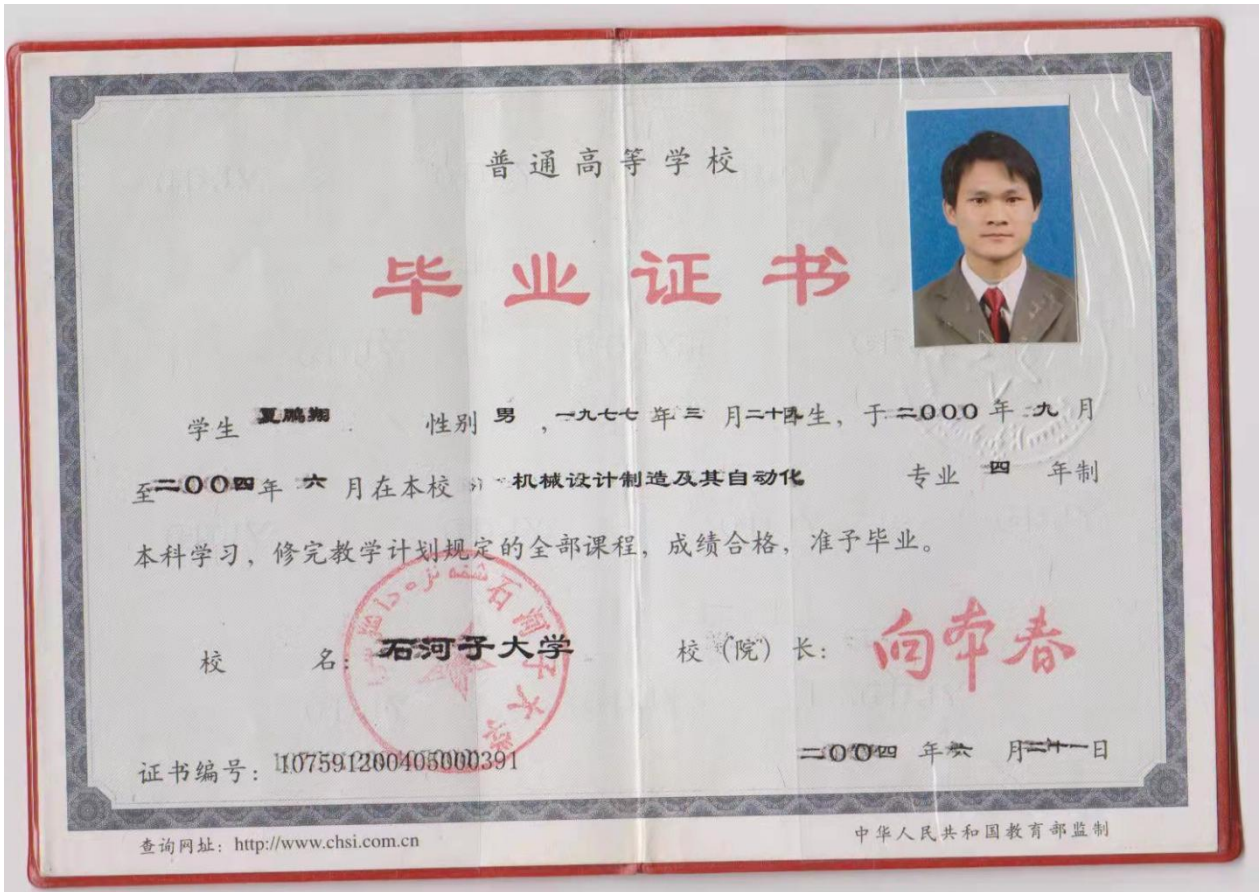 普通高等学校
毕业证书
学生 夏鹏翔 性别 男 ,一九七七 年 三 月二十四生, 于 二000 年 九 月
至二00四年 六 月在本校 机械设计制造及其自动化 专业 四 年制
本科学习, 修完教学计划规定的全部课程, 成绩合格, 准予毕业。
石河子大学
校 名: 石河子大学 校 (院) 长: 向本春
证书编号: 107591200405000391 二00四 年 六 月二十一日
查询网址: http://www.chsi.com.cn 中华人民共和国教育部监制